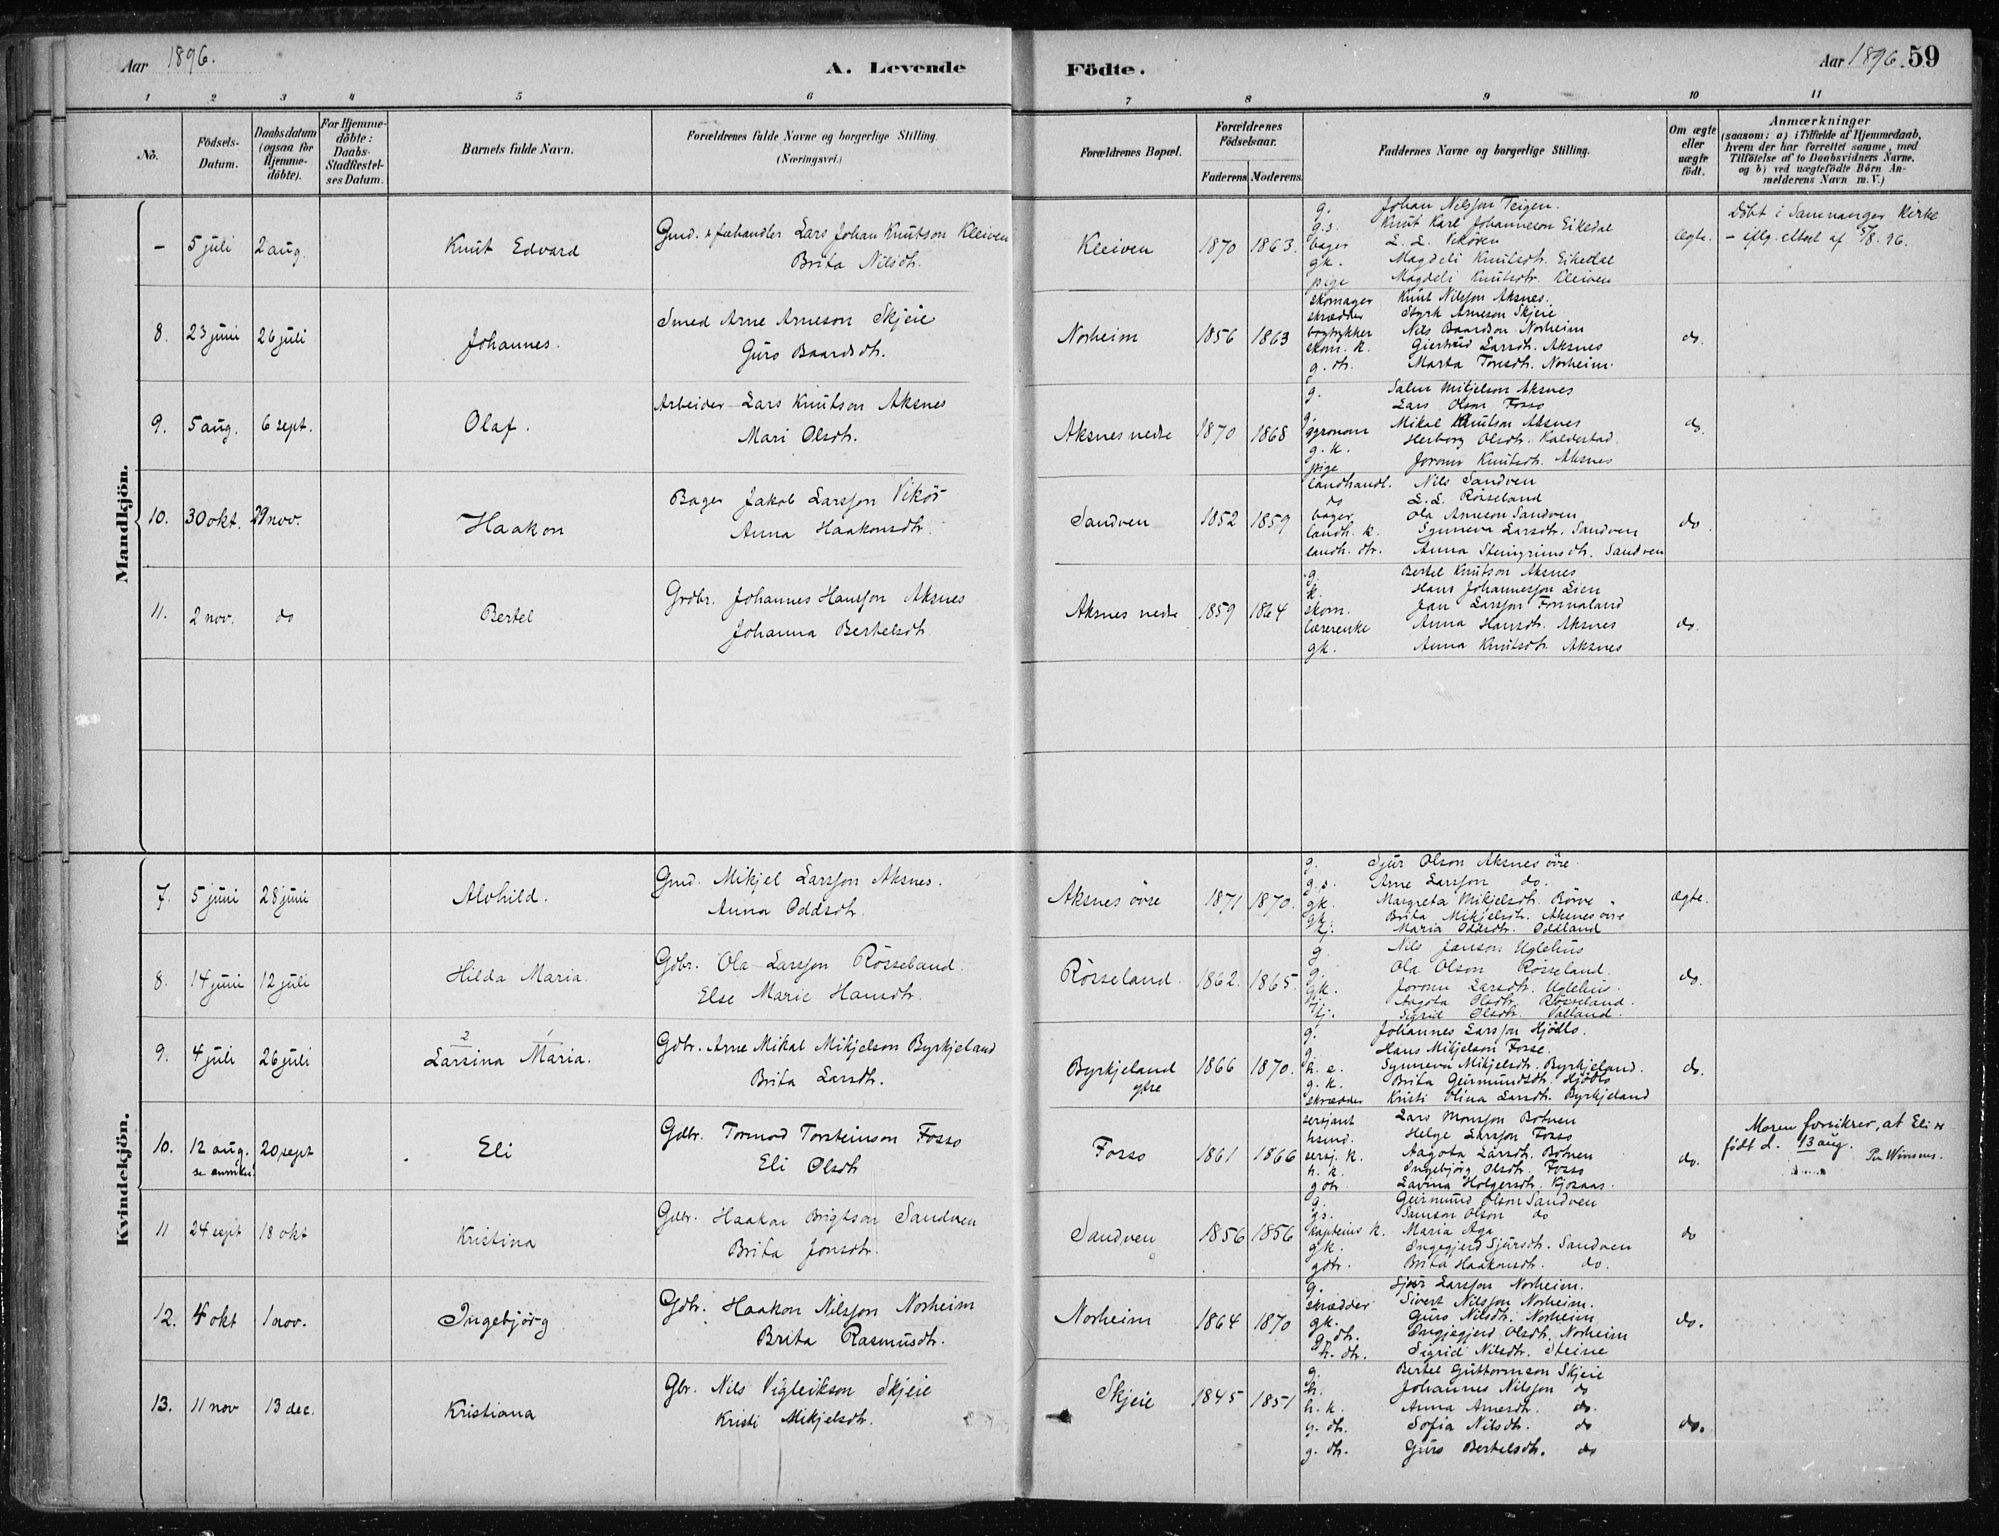 Aar 1896.
A. Levende Födte.
Aar 1896. 59
1 2 3 4 5 6 7 8 9 10 11
No.
Födsels-Datum.
Daabsdatum (ogsaa for Hjemme-döbte).
For Hjemme-döbte: Daabs-Stadfæstel-ses Datum.
Barnets fulde Navn.
Forældrenes fulde Navne og borgerlige Stilling.
(Næringsvei.)
Forældrenes Bopæl.
Forældrenes Födselsaar.
Faderens. Moderens.
Faddernes Navne og borgerlige Stilling.
Om ægte eller uægte födt.
Anmærkninger
(saasom: a) i Tilfælde af Hjemmedaab, hvem der har forrettet samme, med Tilföielse af to Daabsvidners Navne, og b) ved uægtefödte Börn An-melderens Navn m. V.)
Mandkjön.
– 5 juli 2 aug. Knut Edvard
Gmd. & fæhandler Lars Johan Knutson Kleiven
Brita Nilsdtr.
Kleiven 1870 1863.
g. Johan Nilsson Teigen.
g.s. Knut Karl Johanneson Eikedal
bager L. L. Vikören
gk. Magdeli Knutsdtr. Eikedal
pige Magdeli Knutsdtr. Kleiven
Ægte.
Döbt i Samnanger Kirke
– iflg. attest af 5/8. 96.
8. 23 juni 26 juli Johannes.
Smed Arne Arneson Skjeie
Guro Baardsdtr.
Norheim 1856 1863
skomager Knut Nilsson Aksnes.
skrædder Styrk Arneson Skjeie
bogtykker Nils Baardson Norheim
skom. k. Giertrud Larsdtr. Aksnes
g. dtr. Marta Tore̱sdtr. Norheim.
do.
9. 5 aug. 6 sept. Olaf.
Arbeider Lars Knutson Aksnes
Mari Olsdtr.
Aksnes nedre 1870 1868
g. Salm Mikjelson Aksnes
g. Lars Olson Fosso
Mikal Knutson Aksnes
g. k. Herborg Olsdtr. Kaldestad.
pige Joronn Knutsdtr. Aksnes
do.
10. 30 okt. 29 nov. Haakon
Bager Jakob Larsson Vikör
Anna Haakonsdtr.
Sandven 1852 1859
landhandl. Nils Sandven
do L. L. Rösseland
bager Ola Arneson Sandven
landh. k. Synneva Larsdtr. Sandven
landh. dtr. Anna Steingrimsdtr. Sandven
do.
11. 2 nov. do Bertel
Grdbr. Johannes Hansson Aksnes
Johanna Bertelsdtr
Aksnes nedre 1859 1864
g. Bertel Knutson Aksnes
k. Hans Johannesson Lien
skom. Jan Larsson Formaland
lærerenke Anna Hansdtr. Aksnes
gk. Anna Knutsdtr. Aksnes
do.
Kvindekjön.
7. 5 juni 28 juni Alvhild.
Gmd. Mikjel Larsson Aksnes.
Anna Oddsdtr.
Aksnes övre 1871 1870.
g. Sjur Olson Aksnes övre.
g.s. Arne Larsson do.
gk. Margreta Mikjelsdtr. Börve.
gk. Brita Mikjelsdtr. Aksnes övre
tj. Maria Oddsdtr. Oddland
Ægte.
8. 14 juni 12 juli Hilda Maria.
Gdbr. Ola Larsson Rösseland.
Else Marie Hansdtr.
Rösseland. 1862. 1865.
g. Nils Janson Uglehus
g. Ola Olson Rösseland.
gk. Joronn Larsdtr. Uglehus.
Aagota Olsdtr. Rösseland.
tj. Sigrid Olsdtr. Valland.
do.
2 1
9. 4 juli 26 juli Larsina Maria.
Gdbr. Arne Mikal Mikjelson Byrkjeland
Brita Larsdtr.
Byrkjeland ytre 1866 1870.
g. Johannes Larsson Hjödlo.
g. Hans Mikjelson Fosse.
h. e. Synneva Mikjelsdtr. Byrkjeland.
g. k. Brita Geirmundsdtr. Hjödlo
skrædder Kristi Olina Larsdtr. Byrkjeland
do.
10. 12 aug. 20 sept Eli
se anmkn.
Gdbr. Tormod Torsteinson Fosso
Eli Olsdtr
Fosso 1861 1866
sersjant Lars Monsson Botnen
husmd. Helge Larsson Fosso
sersj. k. Aagota Larsdtr. Botnen
h. k. Ingebjörg Olsdtr. Fosso
gdtr. Lavina Holgersdtr. Kjosaas.
do.
Moren forsikrer, at Eli er
födt d. 13 aug.
11 24 sept 18 okt Kristina
Gdbr. Haakon Brigtson Sandven
Brita Jonsdtr.
Sandven 1856 1856
g. Geirmund Olson Sandven
g.s. Samson Olson do
kapteins k. Maria Aga
gk. Ingegjerd Sjursdtr. Sandven
gdtr. Brita Haakonsdtr. do.
do
12. 4 okt 1 nov. Ingebjörg
Gdbr. Haakon Nilsson Norheim
Brita Rasmusdtr.
Norheim 1864 1870
g. Sjur Larsson Norheim.
skrædder Sivert Nilsson Norheim.
gk. Guro Nilsdtr. Norheim
g. dtr. Ingjegjerd Olsdtr. Norheim
h. dtr. Sigrid Nilsdtr. Steine
do.
13. 11 nov 13 dec. Kristiana
Gbr. Nils Vigleikson Skjeie
Kristi Mikjelsdtr.
Skjeie 1845 1851
g. Bertel Guttormson Skjeie
h. Johannes Nilsson do
h. k. Anna Arnesdtr. do.
g. dtr. Sofia Nilsdtr. do
g. dtr. Guro Bertelsdtr. do
do.